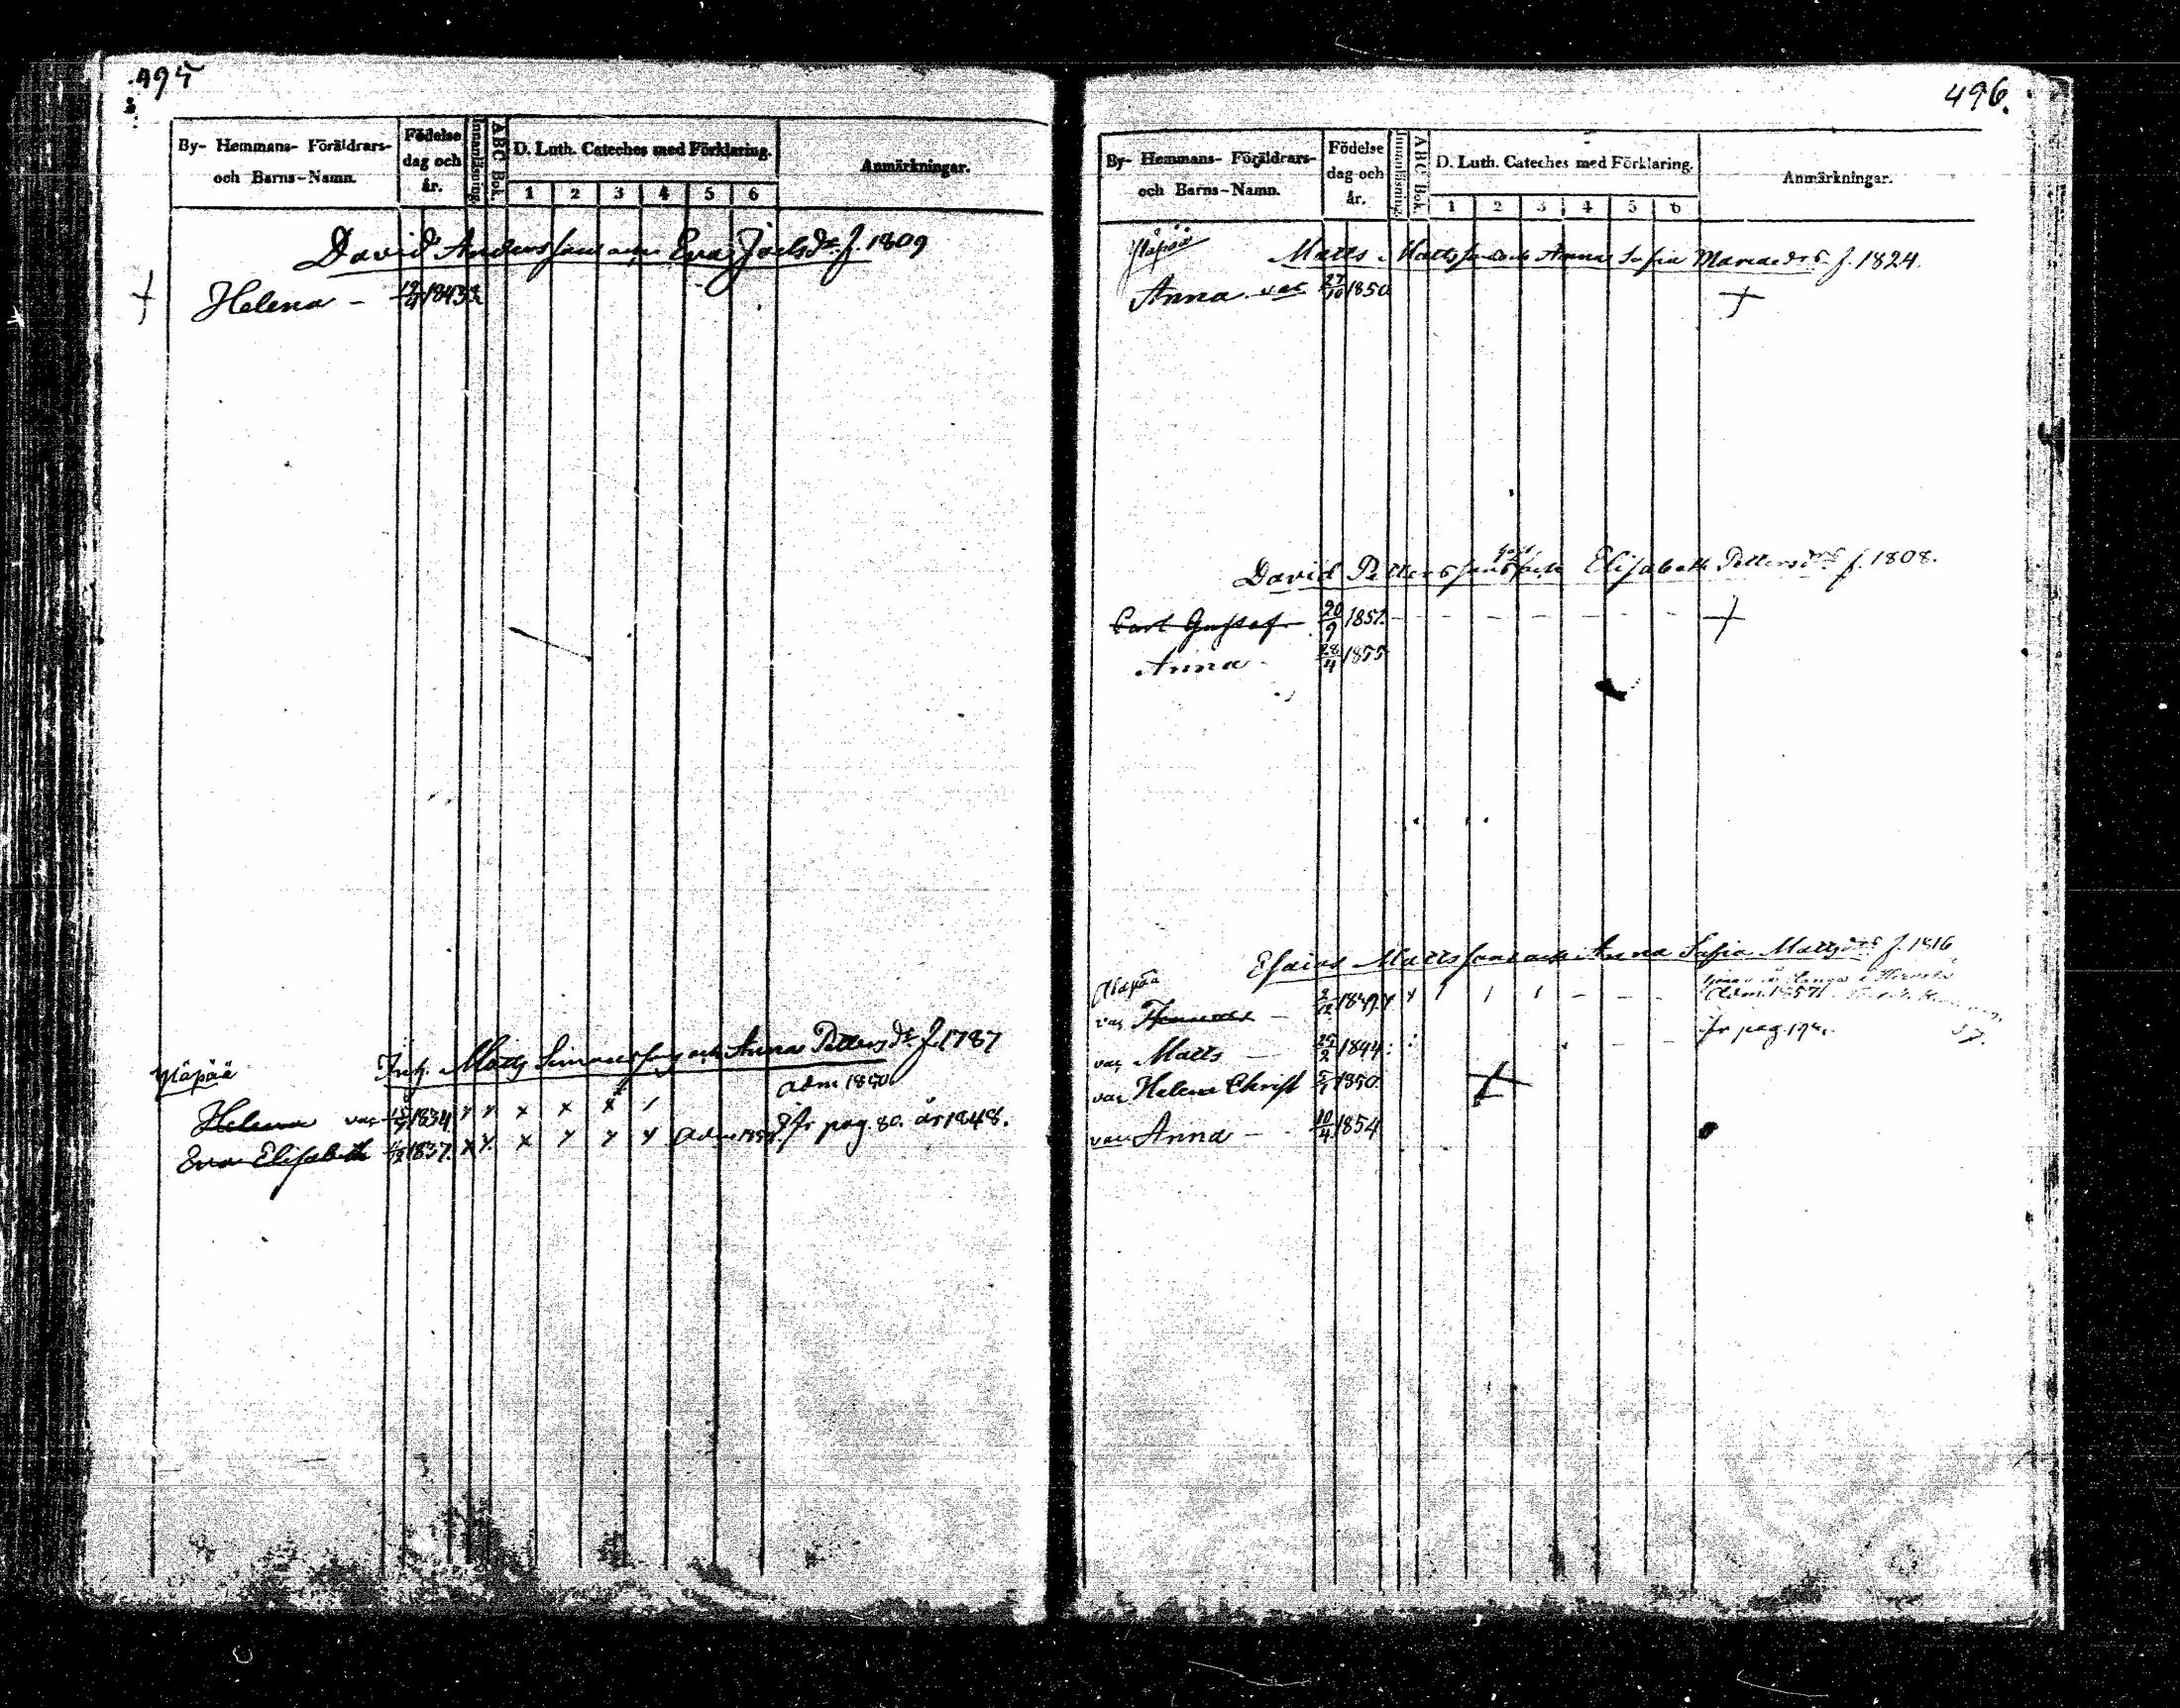 495
By- Hemmans- Föräldrars- och Barns-Namn.
Födelse dag och år.
Innanläsning.
ABC Bok.
D. Luth. Cateches med Förklaring.
1 2 3 4 5 6
Anmärkningar.
David Andersson och Eva Joelsdr. f. 1809
+ Helena – 1843
Yläpää
Inh. Matts Simonsson och Anna Pettersdr f. 1787
adm 1850
Helena vac 1834 x x x x x
Eva Elisabeth 1837. x x x x x x
fr pag. 80. år 1848.
496.
By- Hemmans- Föräldrars- och Barns-Namn.
Födelse dag och år.
Innanläsning.
ABC Bok.
D. Luth. Cateches med Förklaring.
1 2 3 4 5 6
Anmärkningar.
Yläpää
Matts Mattsson och Anna Sofia f. 1824.
Anna vac 27/10 1850 +
David Pettersson och Elisabeth Pettersdr f. 1808.
Carl Gustaf 20/9 1851 +
Anna 28/4 1855
Esaias Mattsson och Anna Sofia Mattsdr f. 1816
Alapää
vac 2/12 1839
Adm. 1857
vac Matts 25/2 1844
fr pag.
vac Helena Christ 5/1 1850 +
vac Anna 10/4 1854